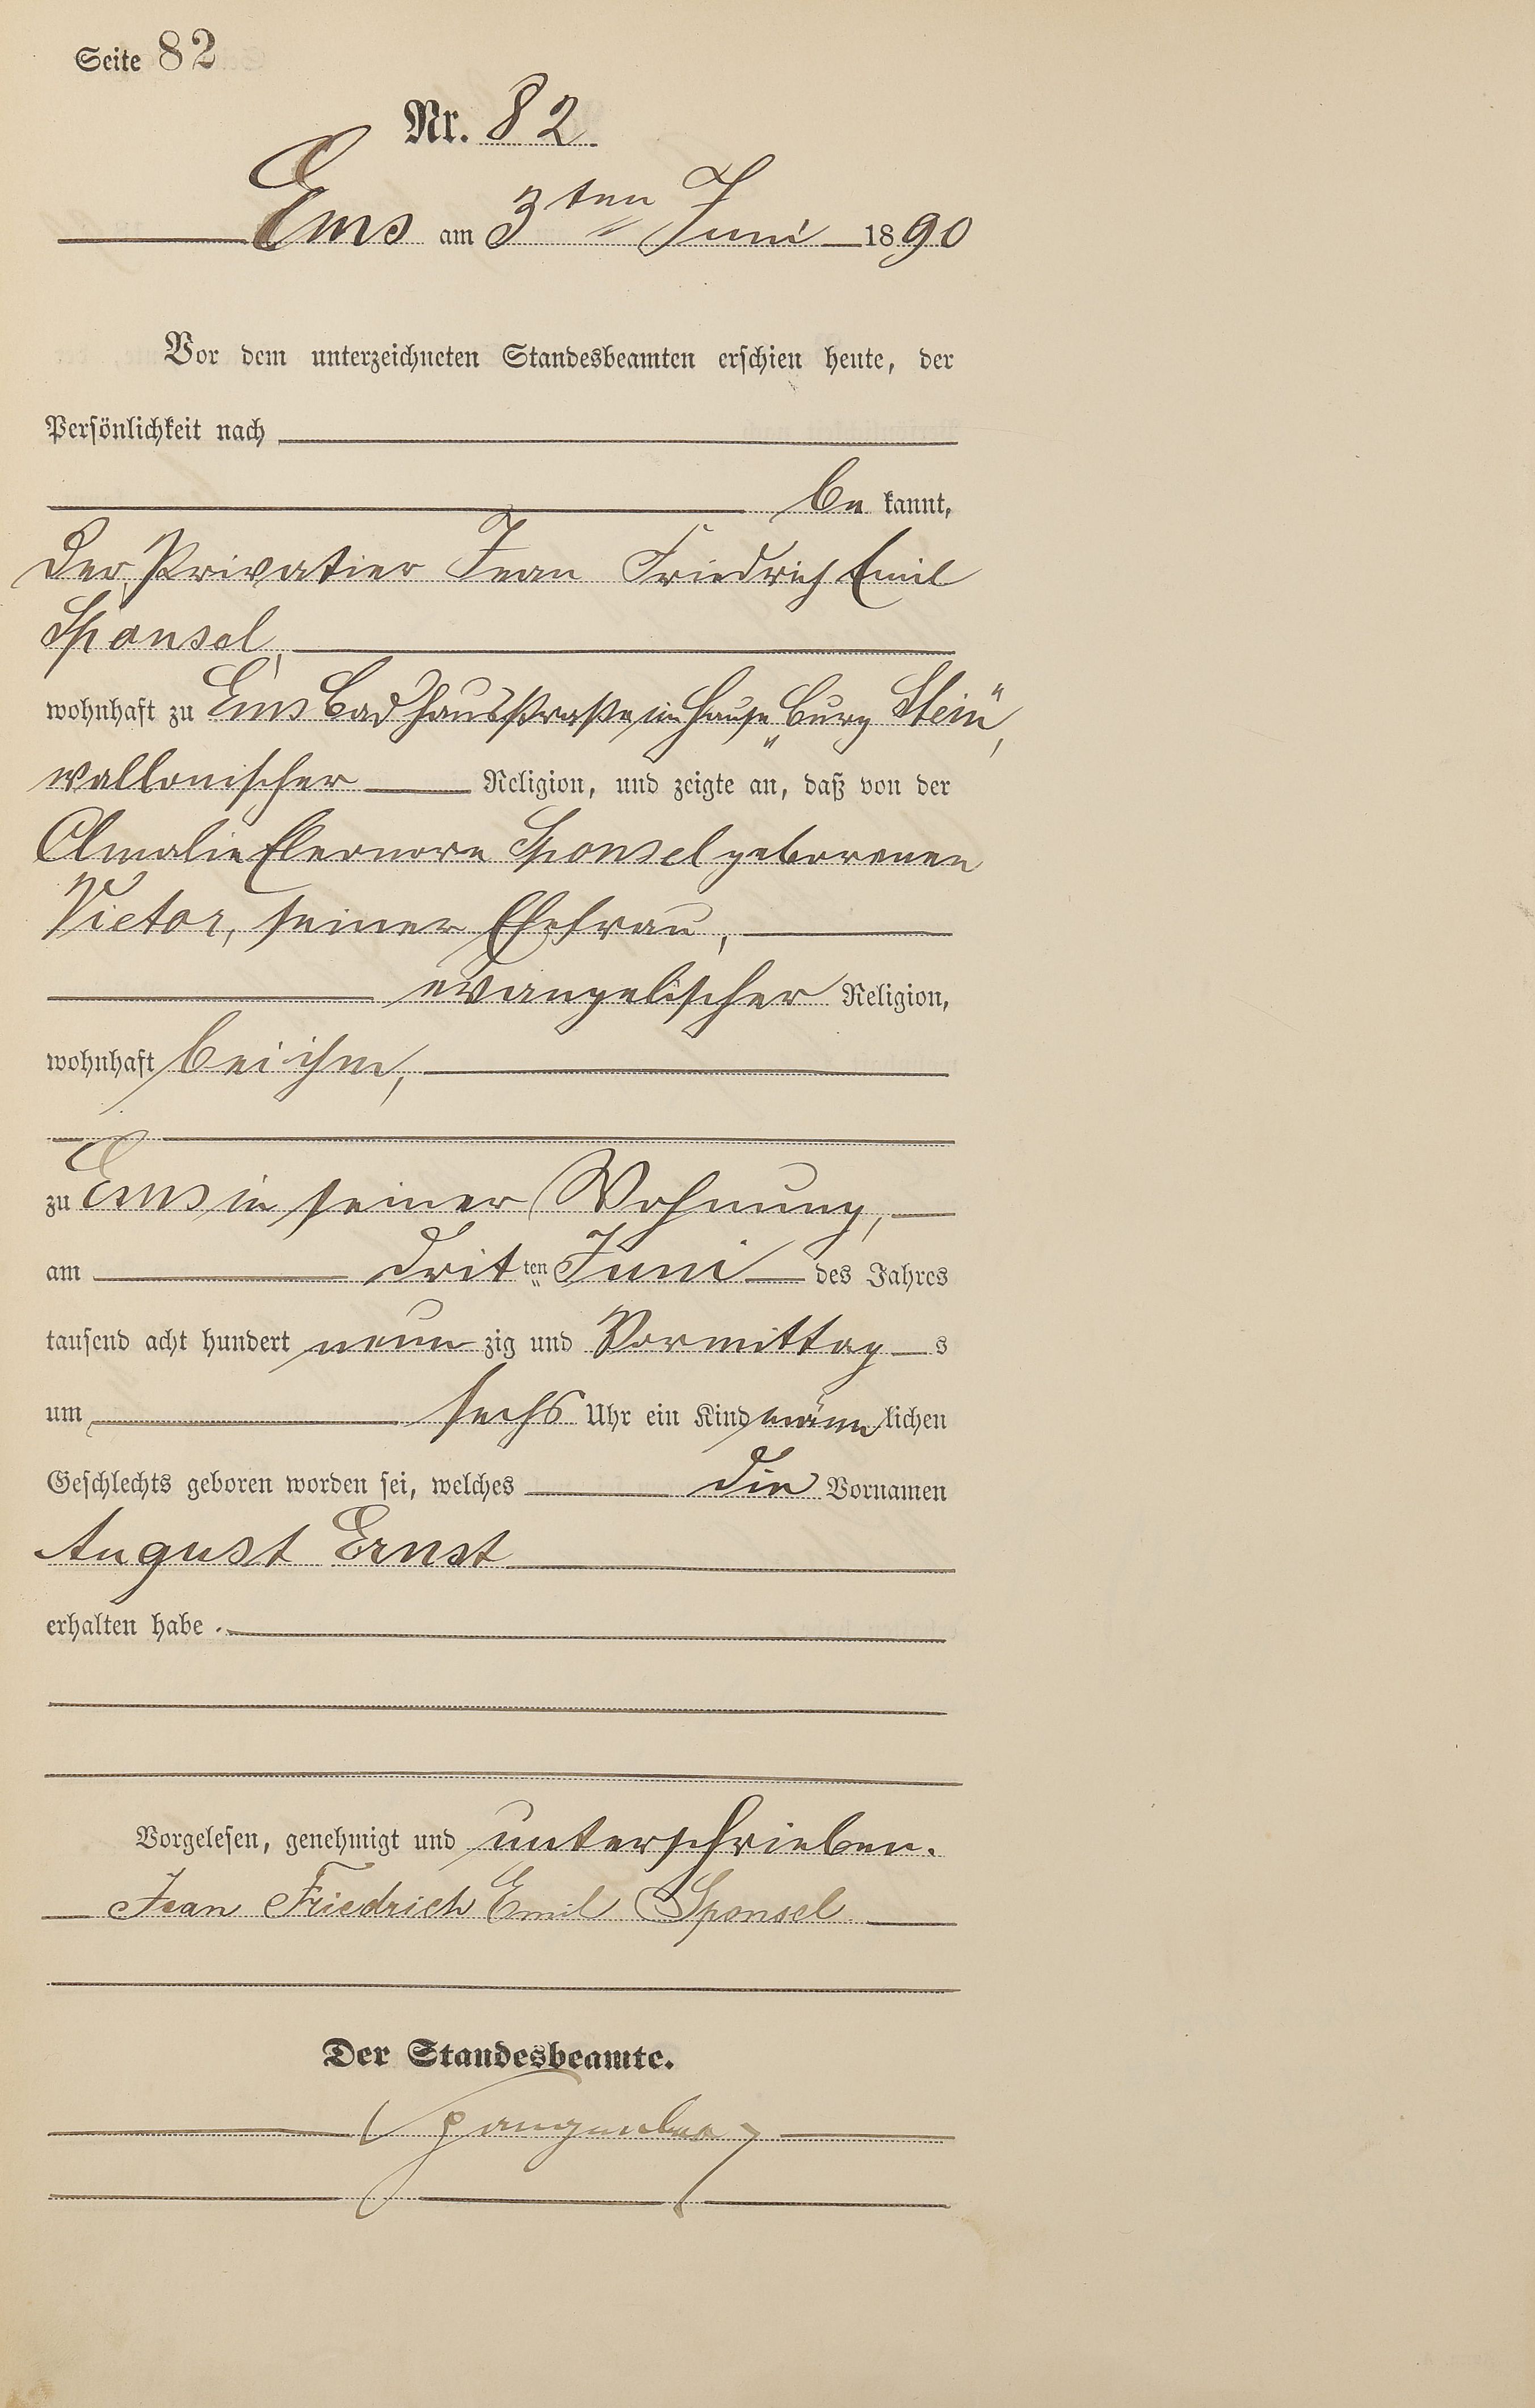 Seite 82
Nr. 82.
Ems am 3ten Juni 1890
Vor dem unterzeichneten Standesbeamten erschien heute, der
Persönlichkeit nach
be kannt,
der Privatier Jean Friedrich Emil
Sponsel,
wohnhaft zu Ems Badhausstraße im Hause „Burg Stein",
wallonischer Religion, und zeigte an, daß von der
Amalie Eleonore Sponsel geborenen
Victor, seiner Ehefrau,
evangelischer Religion,
wohnhaft bei ihm,
zu Ems in seiner Wohnung,
am dritten Juni des Jahres
tausend acht hundert neun zig und Vormittag s
um sechs Uhr ein Kind männ lichen
Geschlechts geboren worden sei, welches die Vornamen
August Ernst
erhalten habe.
Vorgelesen, genehmigt und unterschrieben.
Jean Friedrich Emil Sponsel
Der Standesbeamte.